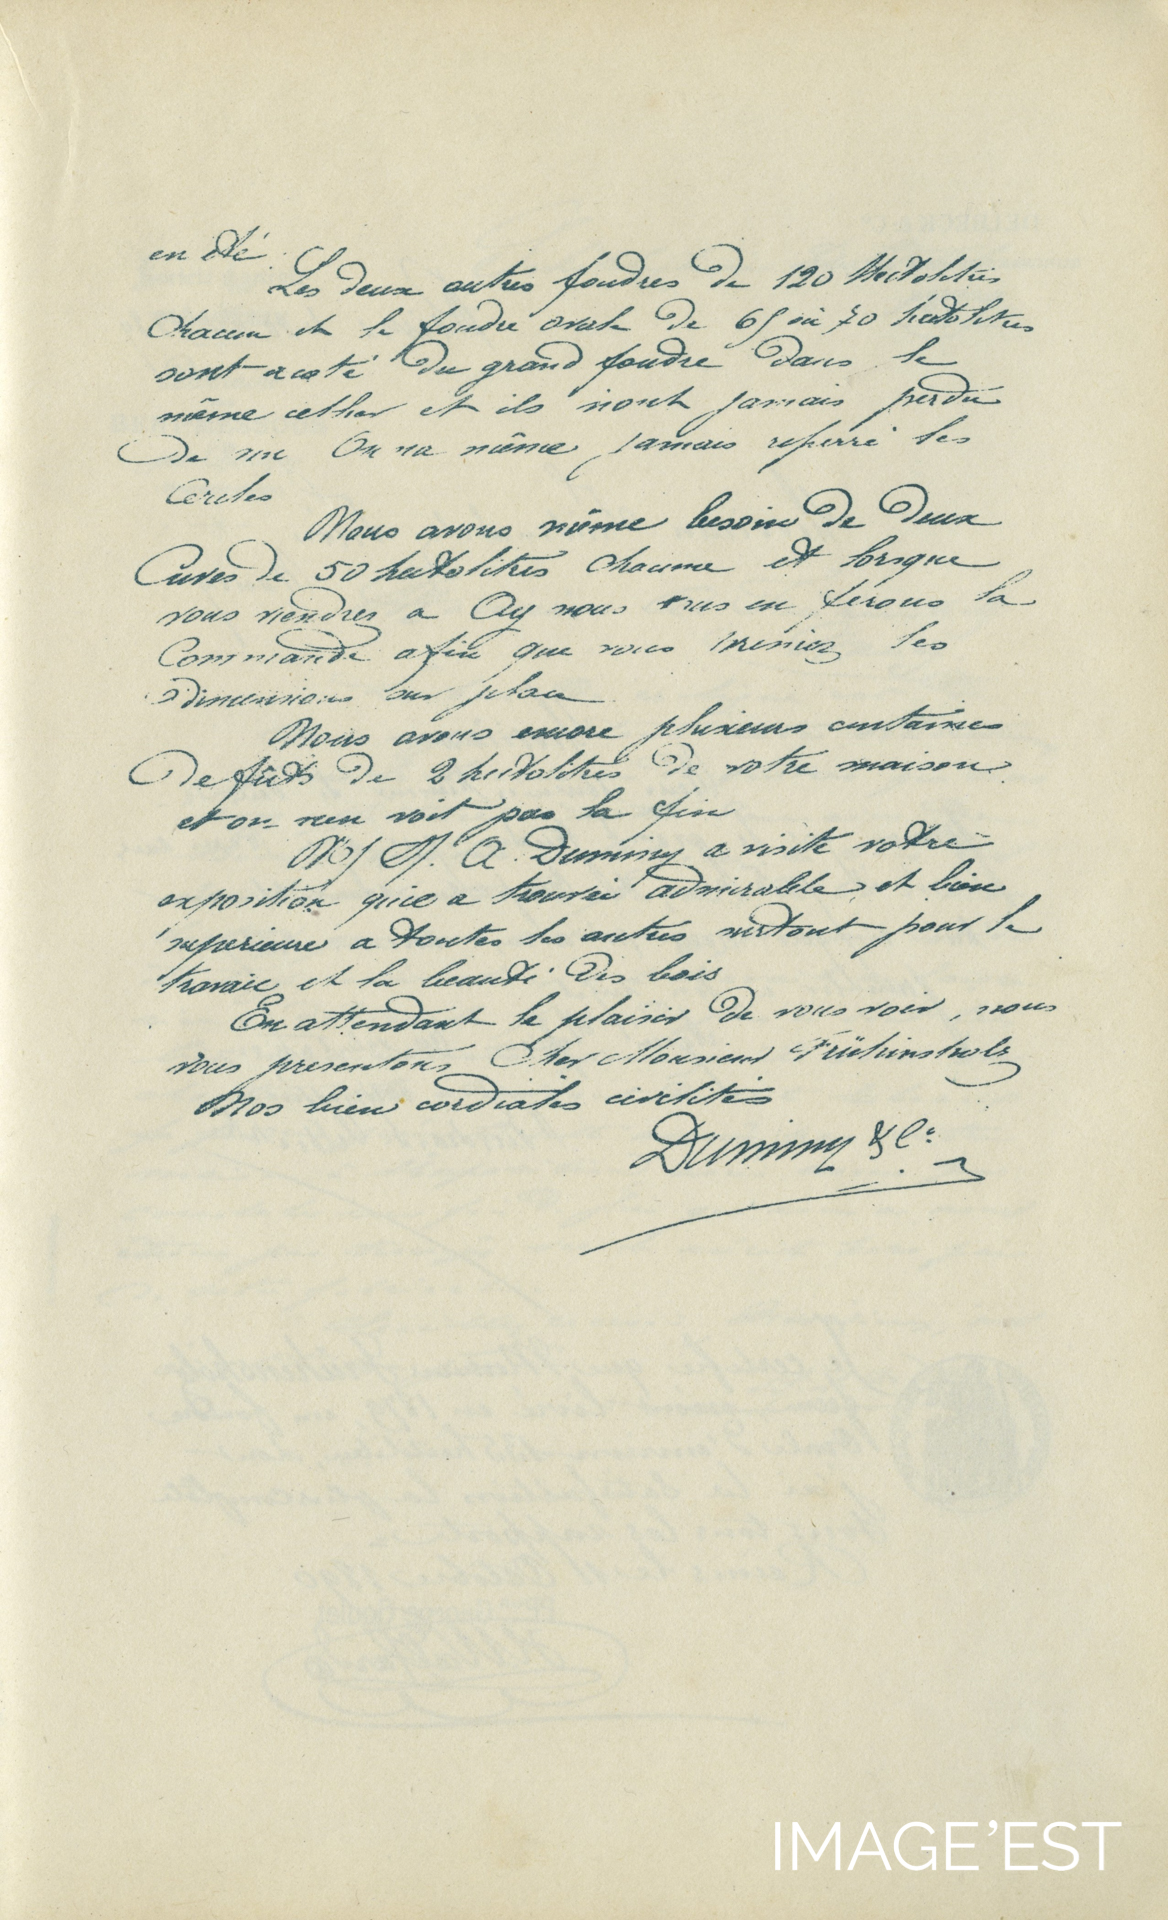 en été
Les deux autres foudres de 120 Hectolitres
chacun et le foudre ovale de 65 ou 70 hectolitres
sont a coté du grand foudre dans le
même cellier et ils n'ont jamais perdu
De vin On na même jamais reserré les
Cercles
Nous avons même besoin de deux
Cuves de 50 hectolitres chacune et lorsque
vous viendrez a Ay nous vous en ferons la
Commande afin que vous preniez les
Dimensions sur place
Nous avons encore plusieurs centaines
De fûts de 2 hectolitres de votre maison
et on nen voit pas la fin
N/ M. A. Duminy a visité votre
exposition quil a trouvée admirable et bien
superieure a toutes les autres surtout pour le
travail et la beauté des bois
En attendant le plaisir de vous voir, nous
vous presentons Cher Monsieur Frühinsholz
Nos bien cordiales civilités
Duminy & Cie
IMAGE'EST